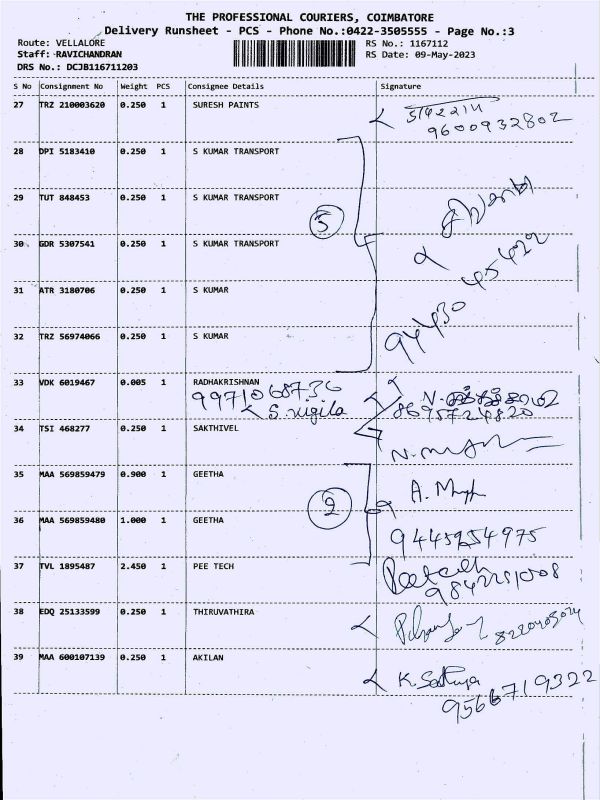 THE PROFESSIONAL COURIERS, COIMBATORE
Delivery Runsheet - PCS - Phone No.:0422-3505555 - Page No.:3
Route: VELLALORE
Staff: RAVICHANDRAN
DRS No.: DCJB116711203
RS No.: 1167112
RS Date: 09-May-2023
S No Consignment No Weight PCS Consignee Details Signature
27 TRZ 210003620 0.250 1 SURESH PAINTS
9600932802
28 DPI 5183410 0.250 1 S KUMAR TRANSPORT
29 TUT 848453 0.250 1 S KUMAR TRANSPORT
5
30 GDR 5307541 0.250 1 S KUMAR TRANSPORT
31 ATR 3180706 0.250 1 S KUMAR
32 TRZ 56974066 0.250 1 S KUMAR
94430 45422
33 VDK 6019467 0.005 1 RADHAKRISHNAN
9971068736
S. vigila
8695724820
34 TSI 468277 0.250 1 SAKTHIVEL
35 MAA 569859479 0.900 1 GEETHA
2
36 MAA 569859480 1.000 1 GEETHA
9445954975
37 TVL 1895487 2.450 1 PEE TECH
38 EDQ 25133599 0.250 1 THIRUVATHIRA
39 MAA 600107139 0.250 1 AKILAN
K. Sathya
9566719322